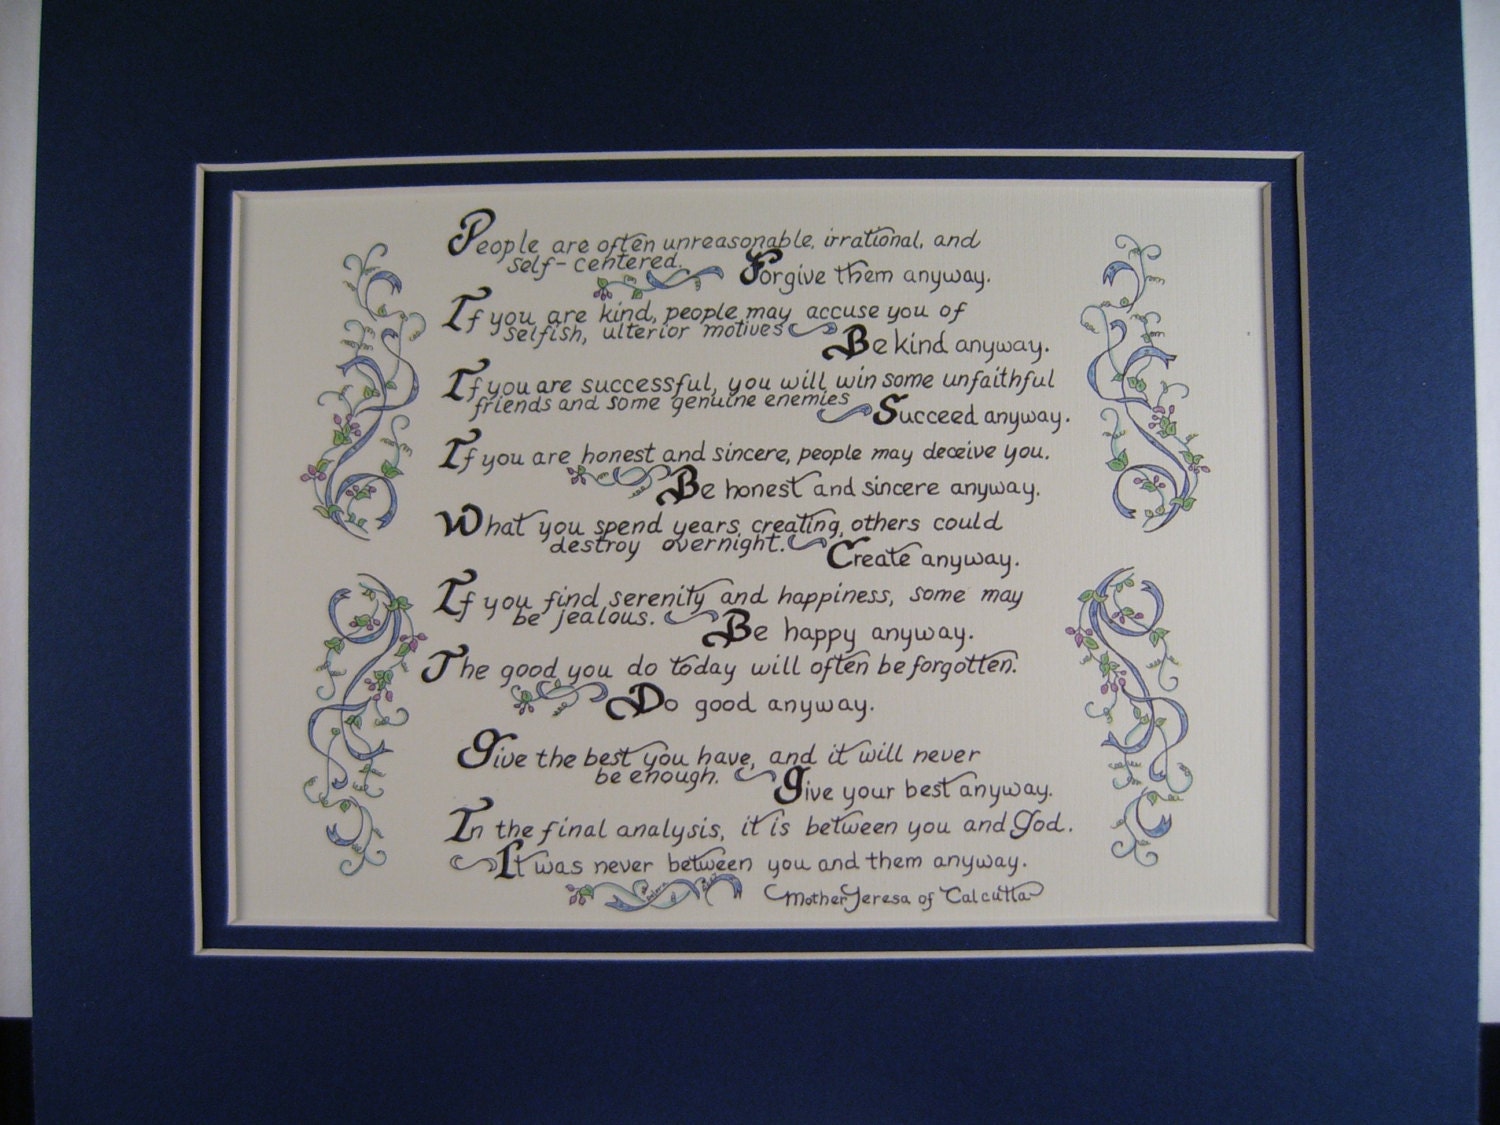 People are often unreasonable, irrational, and
self-centered. Forgive them anyway.
If you are kind, people may accuse you of
selfish, ulterior motives Be kind anyway.
If you are successful, you will win some unfaithful
friends and some genuine enemies Succeed anyway.
If you are honest and sincere, people may deceive you.
Be honest and sincere anyway.
What you spend years creating, others could
destroy overnight. Create anyway.
If you find serenity and happiness, some may
be jealous. Be happy anyway.
The good you do today will often be forgotten.
Do good anyway.
Give the best you have, and it will never
be enough. Give your best anyway.
In the final analysis, it is between you and God.
It was never between you and them anyway.
Mother Teresa of Calcutta